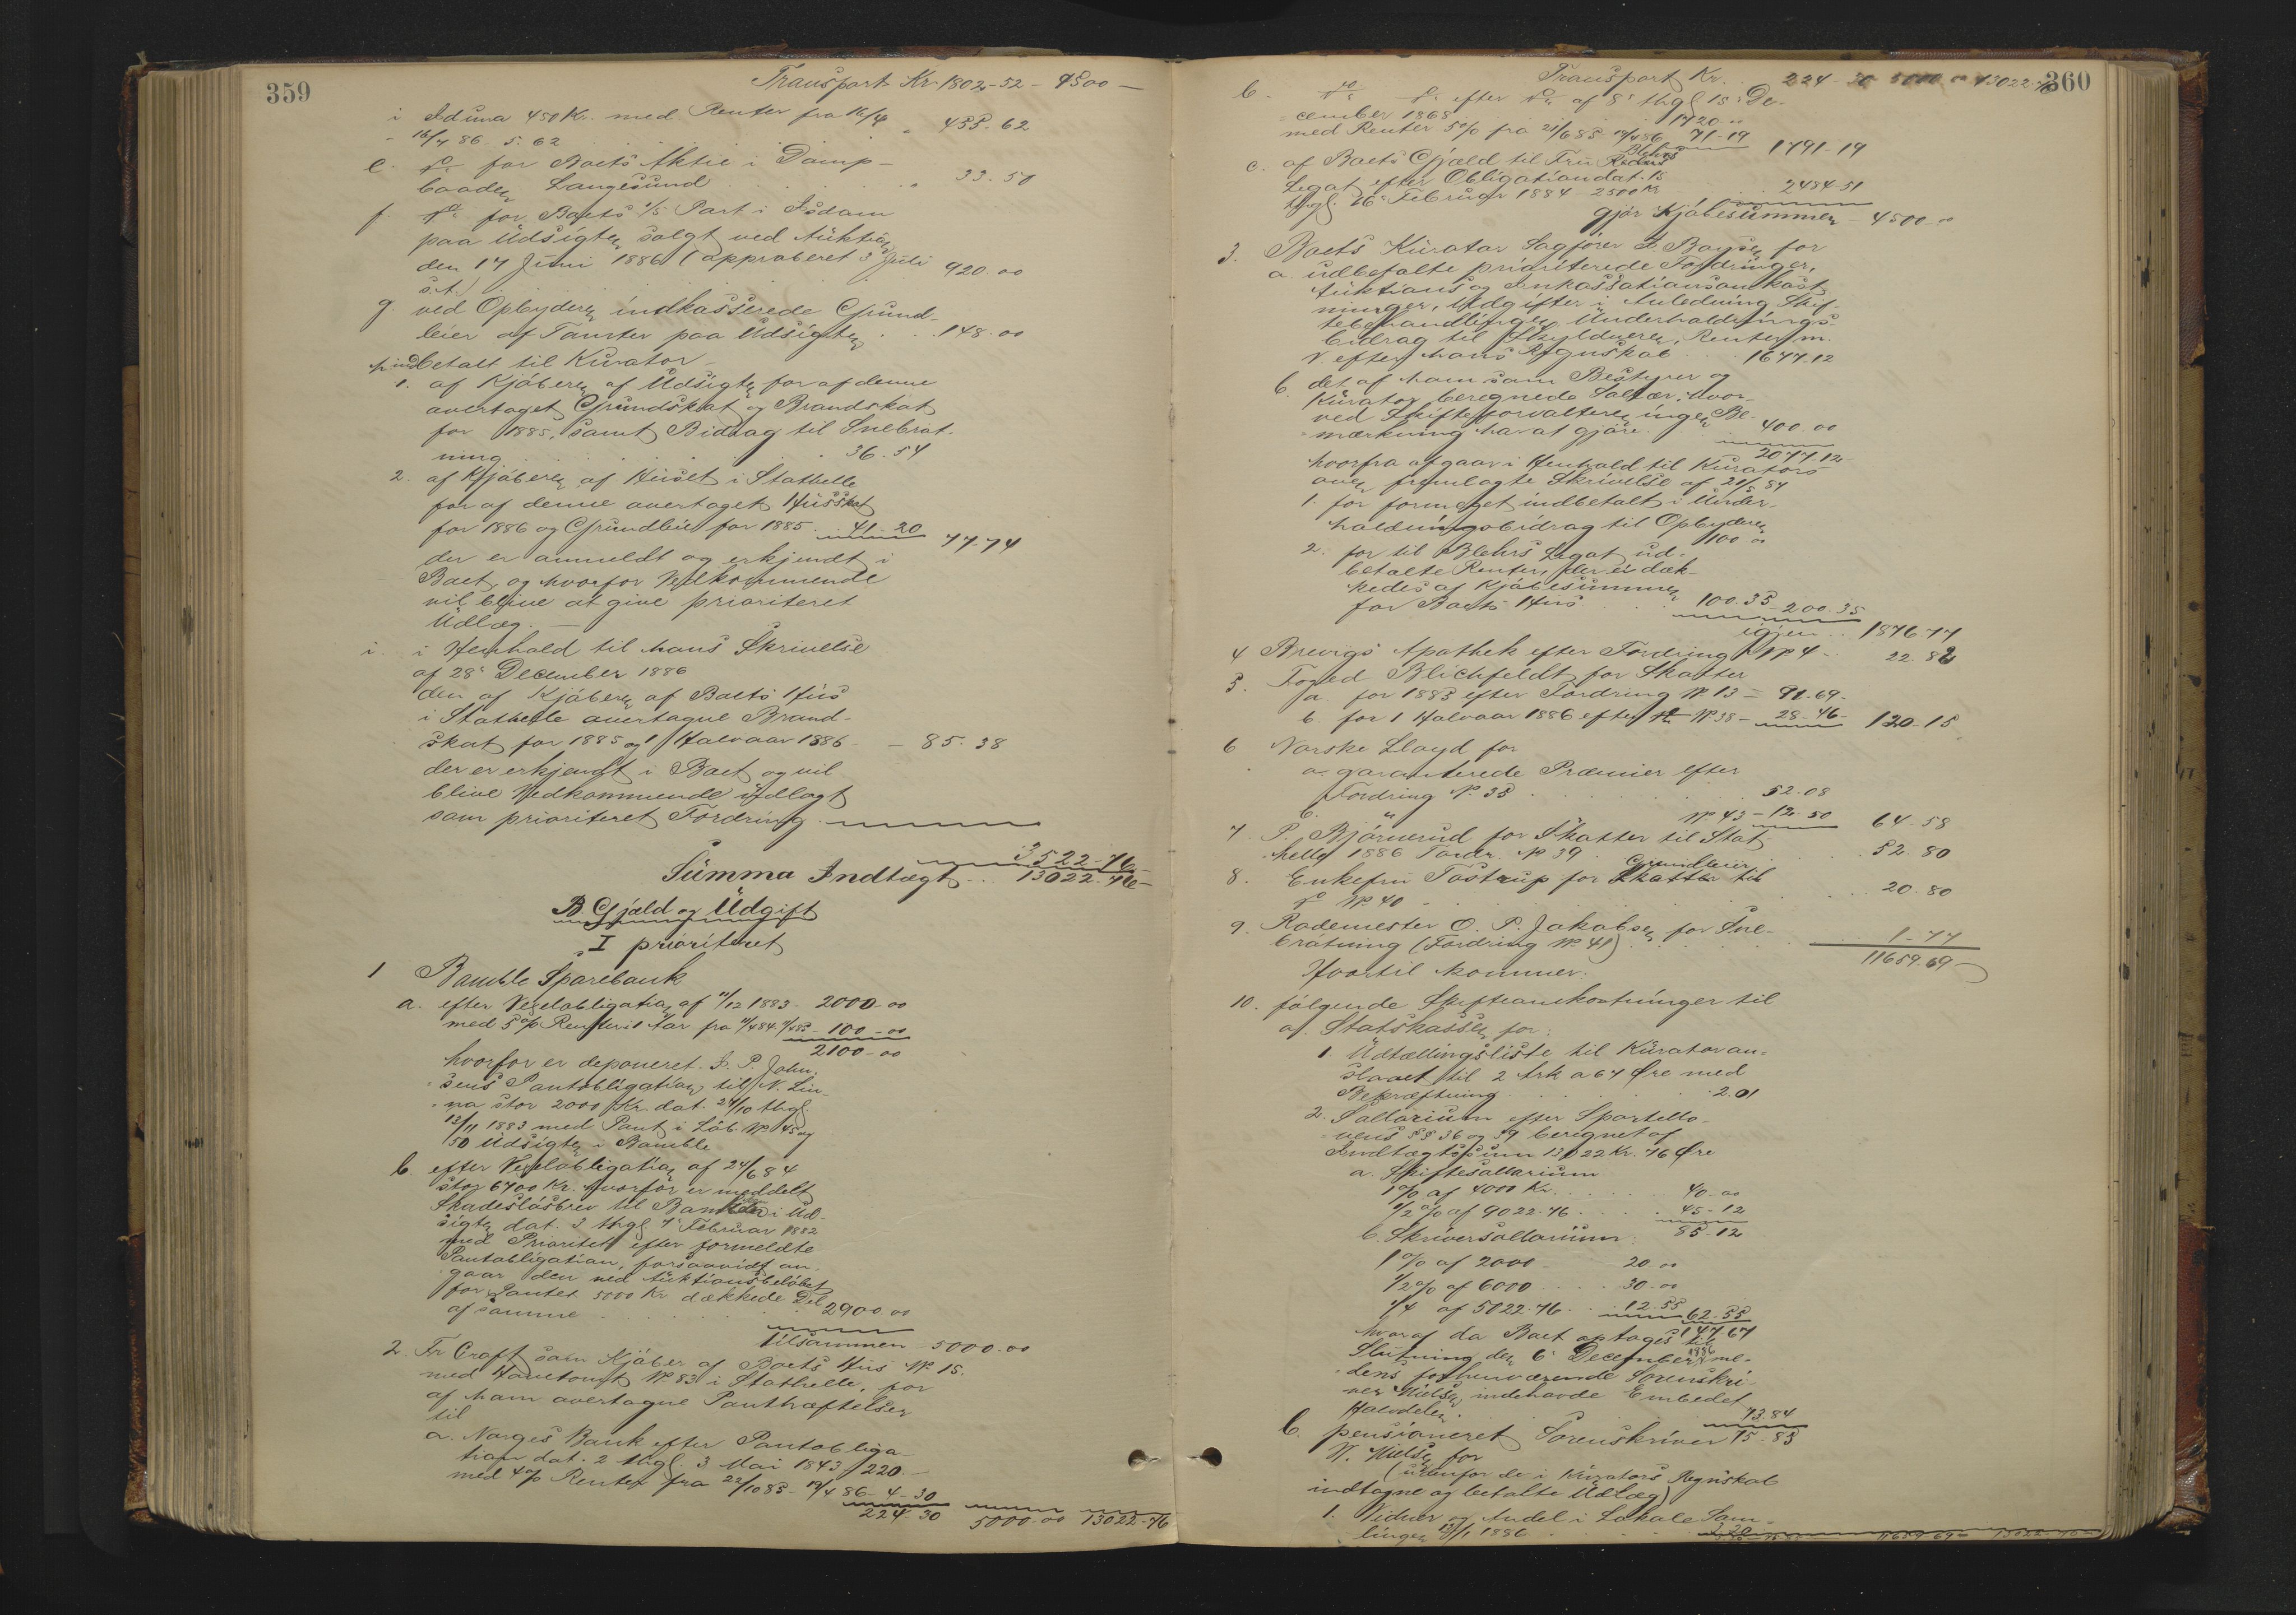 359
Transport Kr. 1802-52 - 9500 —
i Iduna 450 Kr. med Renter fra 16/4
- 16/7 86 5.62 . . . . . „ 455.62
e. Do for Boets Aktie i Damp-
baaden Langesund . . . . . „ 33.50
f. Do for Boets 1/5 Part i Isdam
paa Udsigten solgt ved Auktion
den 17 Juni 1886 (approberet 3 Juli
s.A.) . . . . 920.00
g. ved Opbyderen indkasserede Grund-
leier af Tomter paa Udsigten . . . 148.00
h. indbetalt til Kurator
1. af Kjøberen af Udsigten for af denne
overtaget Grundskat og Brandskat
for 1885, samt Bidrag til Snebrøt-
ning . . . . . 36.54
2. af Kjøberen af Huset i Stathelle
for af denne overtaget Husskat
for 1886 og Grundleie for 1885 . . 41.20 77.74
der er anmeldt og erkjendt i
Boet, og hvorfor Vedkommende
vil blive at give prioriteret
Udlæg. —
i. i Henhold til hans Skrivelse
af 28 December 1886
den af Kjøberen af Boets Hus
i Stathelle overtagne Brand-
skat for 1885 og 1 Halvaar 1886 - - 85.38
der er erkjendt i Boet og vil
blive Vedkommende udlagt
som prioriteret Fordring.
3522-76
Summa Indtægt . . 13022.76 -
B. Gjæld og Udgift
I prioriteret
1 Bamble Sparebank
a. efter Vexelobligation af 11/12 1883 - 2000-00
med 5 % Renter i 1 Aar fra 11/484-11/485 - 100-00
2100-00
hvorfor er deponeret J. P. John-
sens Pantobligation til N. Lin-
na stor 2000 Kr. dat. 24/10 thgl.
12/11 1883 med Pant i Løb. No 45 og
50 Udsigten i Bamble
b efter Vexelobligation af 24/684
stor 6700 Kr. hvorfor er meddelt
Skadesløsbrev til Banken i Ud-
sigten dat. 3 thgl. 7 Februar 1882
med Prioritet efter formeldte
Pantobligation, forsaavidt an-
gaar den ved Auktionsbeløbet
for Pantet 5000 Kr. dækkede Del
af samme . . . . 2900.00
tilsammen 5000.00
2. Fr Croft som Kjøber af Boets Hus No 15.
med Havetomt No 83 i Stathelle, for
af ham overtagne Panthæftelser
til
a. Norges Bank efter Pantobliga-
tion dat. 2 thgl. 3 Mai 1843 220. —
med 4 % Renter fra 22/1085 - 19/486 - 4-30
224 30 5000.00 13022-76
360
Transport Kr. . 224-30 5000 00 13022-76
b. Do Do efter Do af 8 thgl 15 De-
cember 1868 . . . 1720 00
med Renter 5 % fra 21/685 19/486 71-19 1791-19
c. af Boets Gjæld til Fru Blehrs
Legat efter Obligation dat. 15
thgl. 26 Februar 1884 2500 Kr . . . 2484-51
gjør Kjøbesummen - 4500-00
3. Boets Kurator Sagfører F. Boysen for
a. udbetalte prioriterede Fordringer,
Auktions og Inkassationsomkost-
ninger, Udgifter i Anledning Skif-
tebehandlingen, Underholdnings-
bidrag til Skyldneren, Renter m.
V. efter hans Regnskab . . 1677.12
b. det af ham som Bestyrer og
Kurator beregnede Salær, hvor-
ved Skifteforvalteren ingen Be-
mærkning har at gjøre . . 400.00
2077.12
hvorfra afgaar i Henhold til Kurators
over fremlagte Skrivelse af
1. for formeget indbetalt i Under-
holdningsbidrag til Opbyderen
100 00
2. for til Blehrs Legat ud-
betalte Renter, der er dæk-
kedes af Kjøbesummen
for Boets Hus . . 100.35 200.35
igjen . . 1876.77
4 Brevigs Apothek efter Fordring No 4 . . 22.82
5. Foged Blichfeldt for Skatter
a for 1885 efter Fordring No 13 - 91.69 -
b. for 1 Halvaar 1886 efter Do No 38 - 28-46 - 120-15
6 Norske Lloyd for
a. garanterede Præmier efter
Fordring No 35 . . . . 52.08
b. „ No 43 - 12.50 64-58
7. P. Bjørnerud for Skatter til Stat-
helle 1886 Fordr. No 39 . . . . 52.80
8. Enkefru Tostrup for Grundleier til
Do No 40 . . . . . 20.80
9. Rodemester O. P. Jakobsen for Sne-
brøtning (Fordring No 41) . . . . 1-77
11659.69 —
Hvortil kommer:
10. følgende Skifteomkostninger til
a. Statskassen for:
1. Udtællingsliste til Kurator an-
slaaet til 2 Ark a 64 Øre med
Bekræftning . . . . . 2.01
2. Sallarium efter Sportello-
vens §§ 36 og 39 beregnet af
Indtægtssum 13022 Kr. 76 Øre
a. Skiftesallarium
1 % af 4000 Kr. . . . . 40-00
1/2 % af 9022.76 . . . . 45-12
85-12
b. Skriversallarium:
1 % af 2000 - 20.00
1/2 % af 6000 . . . 30.00
1/4 af 5022.76 . . . 12.55 62-55
147.67
hvoraf da Boet optages til
Slutning den 6 December 1886 me-
dens forhenværende Sorenskri-
ver Nielsen indehavde Embedet
Halvdelen . . . 73.84
75-85
b. pensioneret Sorenskriver
N. Nielsen for
(udenfor de i Kurators Regnskab
indtagne og betalte Udlæg)
1. Vidner og Andel i Lokale Sam-
lingen 12/1 1886 . . . . 3.20